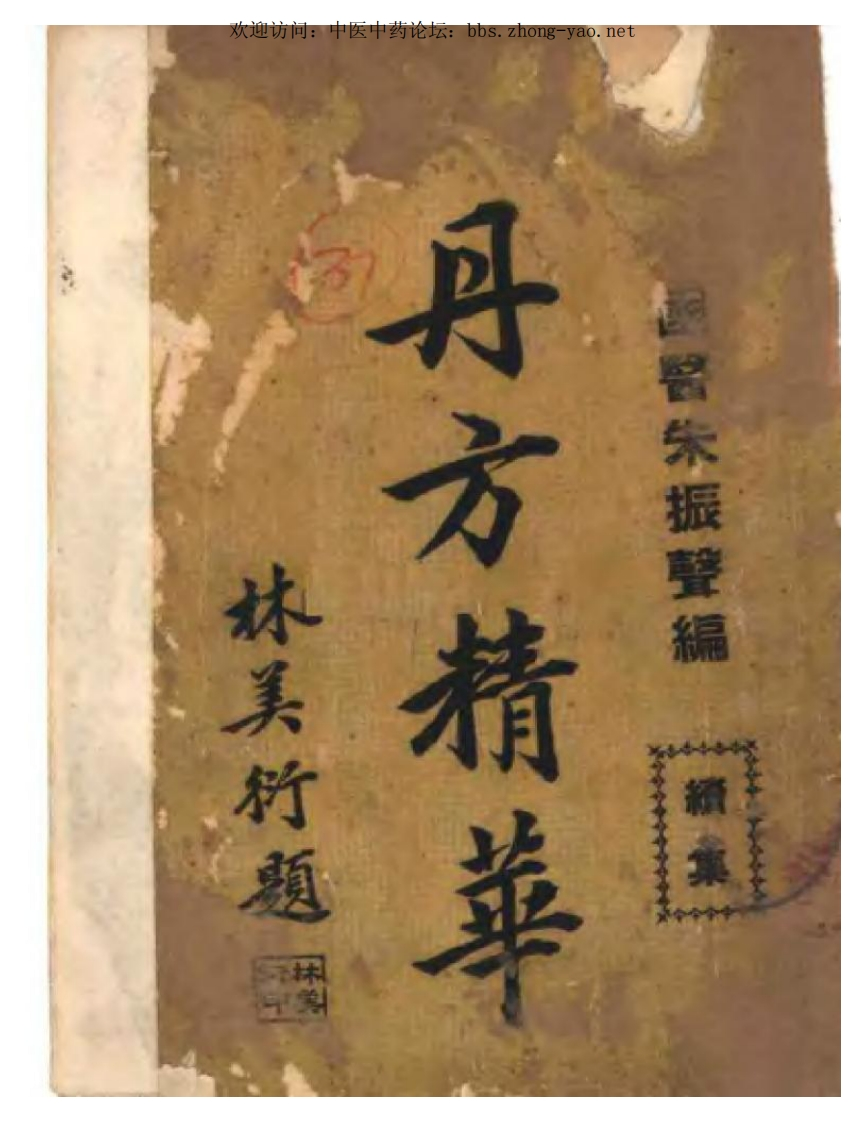 欢迎访问：中医中药论坛：bbs.zhong-yao.net
國醫朱振聲編
續集
丹方精華
林美衍題